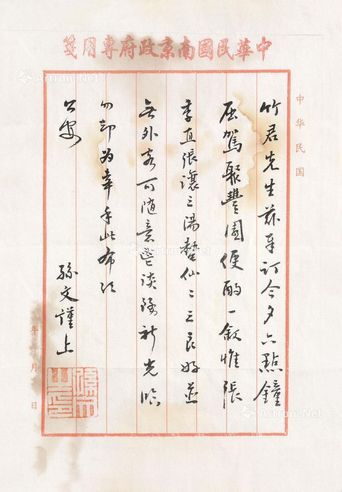 中華民國南京政府專用箋
中华民国
竹君先生茲奉訂今夕六點鐘
屈駕聚豐園便酌一敘惟張
季直張讓三湯蟄仙二三良好並
無外客可隨意暢談務祈光臨
勿却為幸手此布頌
公安
孫文謹上
年 月 日